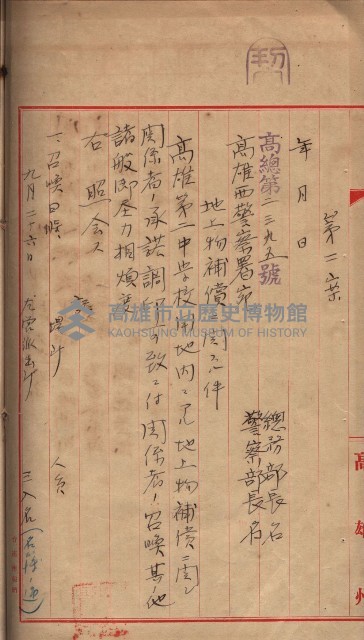 第二案
年 月 日
高總第二三九五號
總務部長名
警察部長名
高雄西警察署宛
地上物補償ニ関スル件
高雄第二中学校用地内ニアル地上物補償ニ関シ
関係者ノ承諾調印
致シ度ニ付関係者ノ召喚其ノ他
諸般御尽力相煩度
右照会ス
一、召喚日時 場所 人員
九月二十六日 左営派出所 三八名
高雄市立歷史博物館
KAOHSIUNG MUSEUM OF HISTORY
高雄州